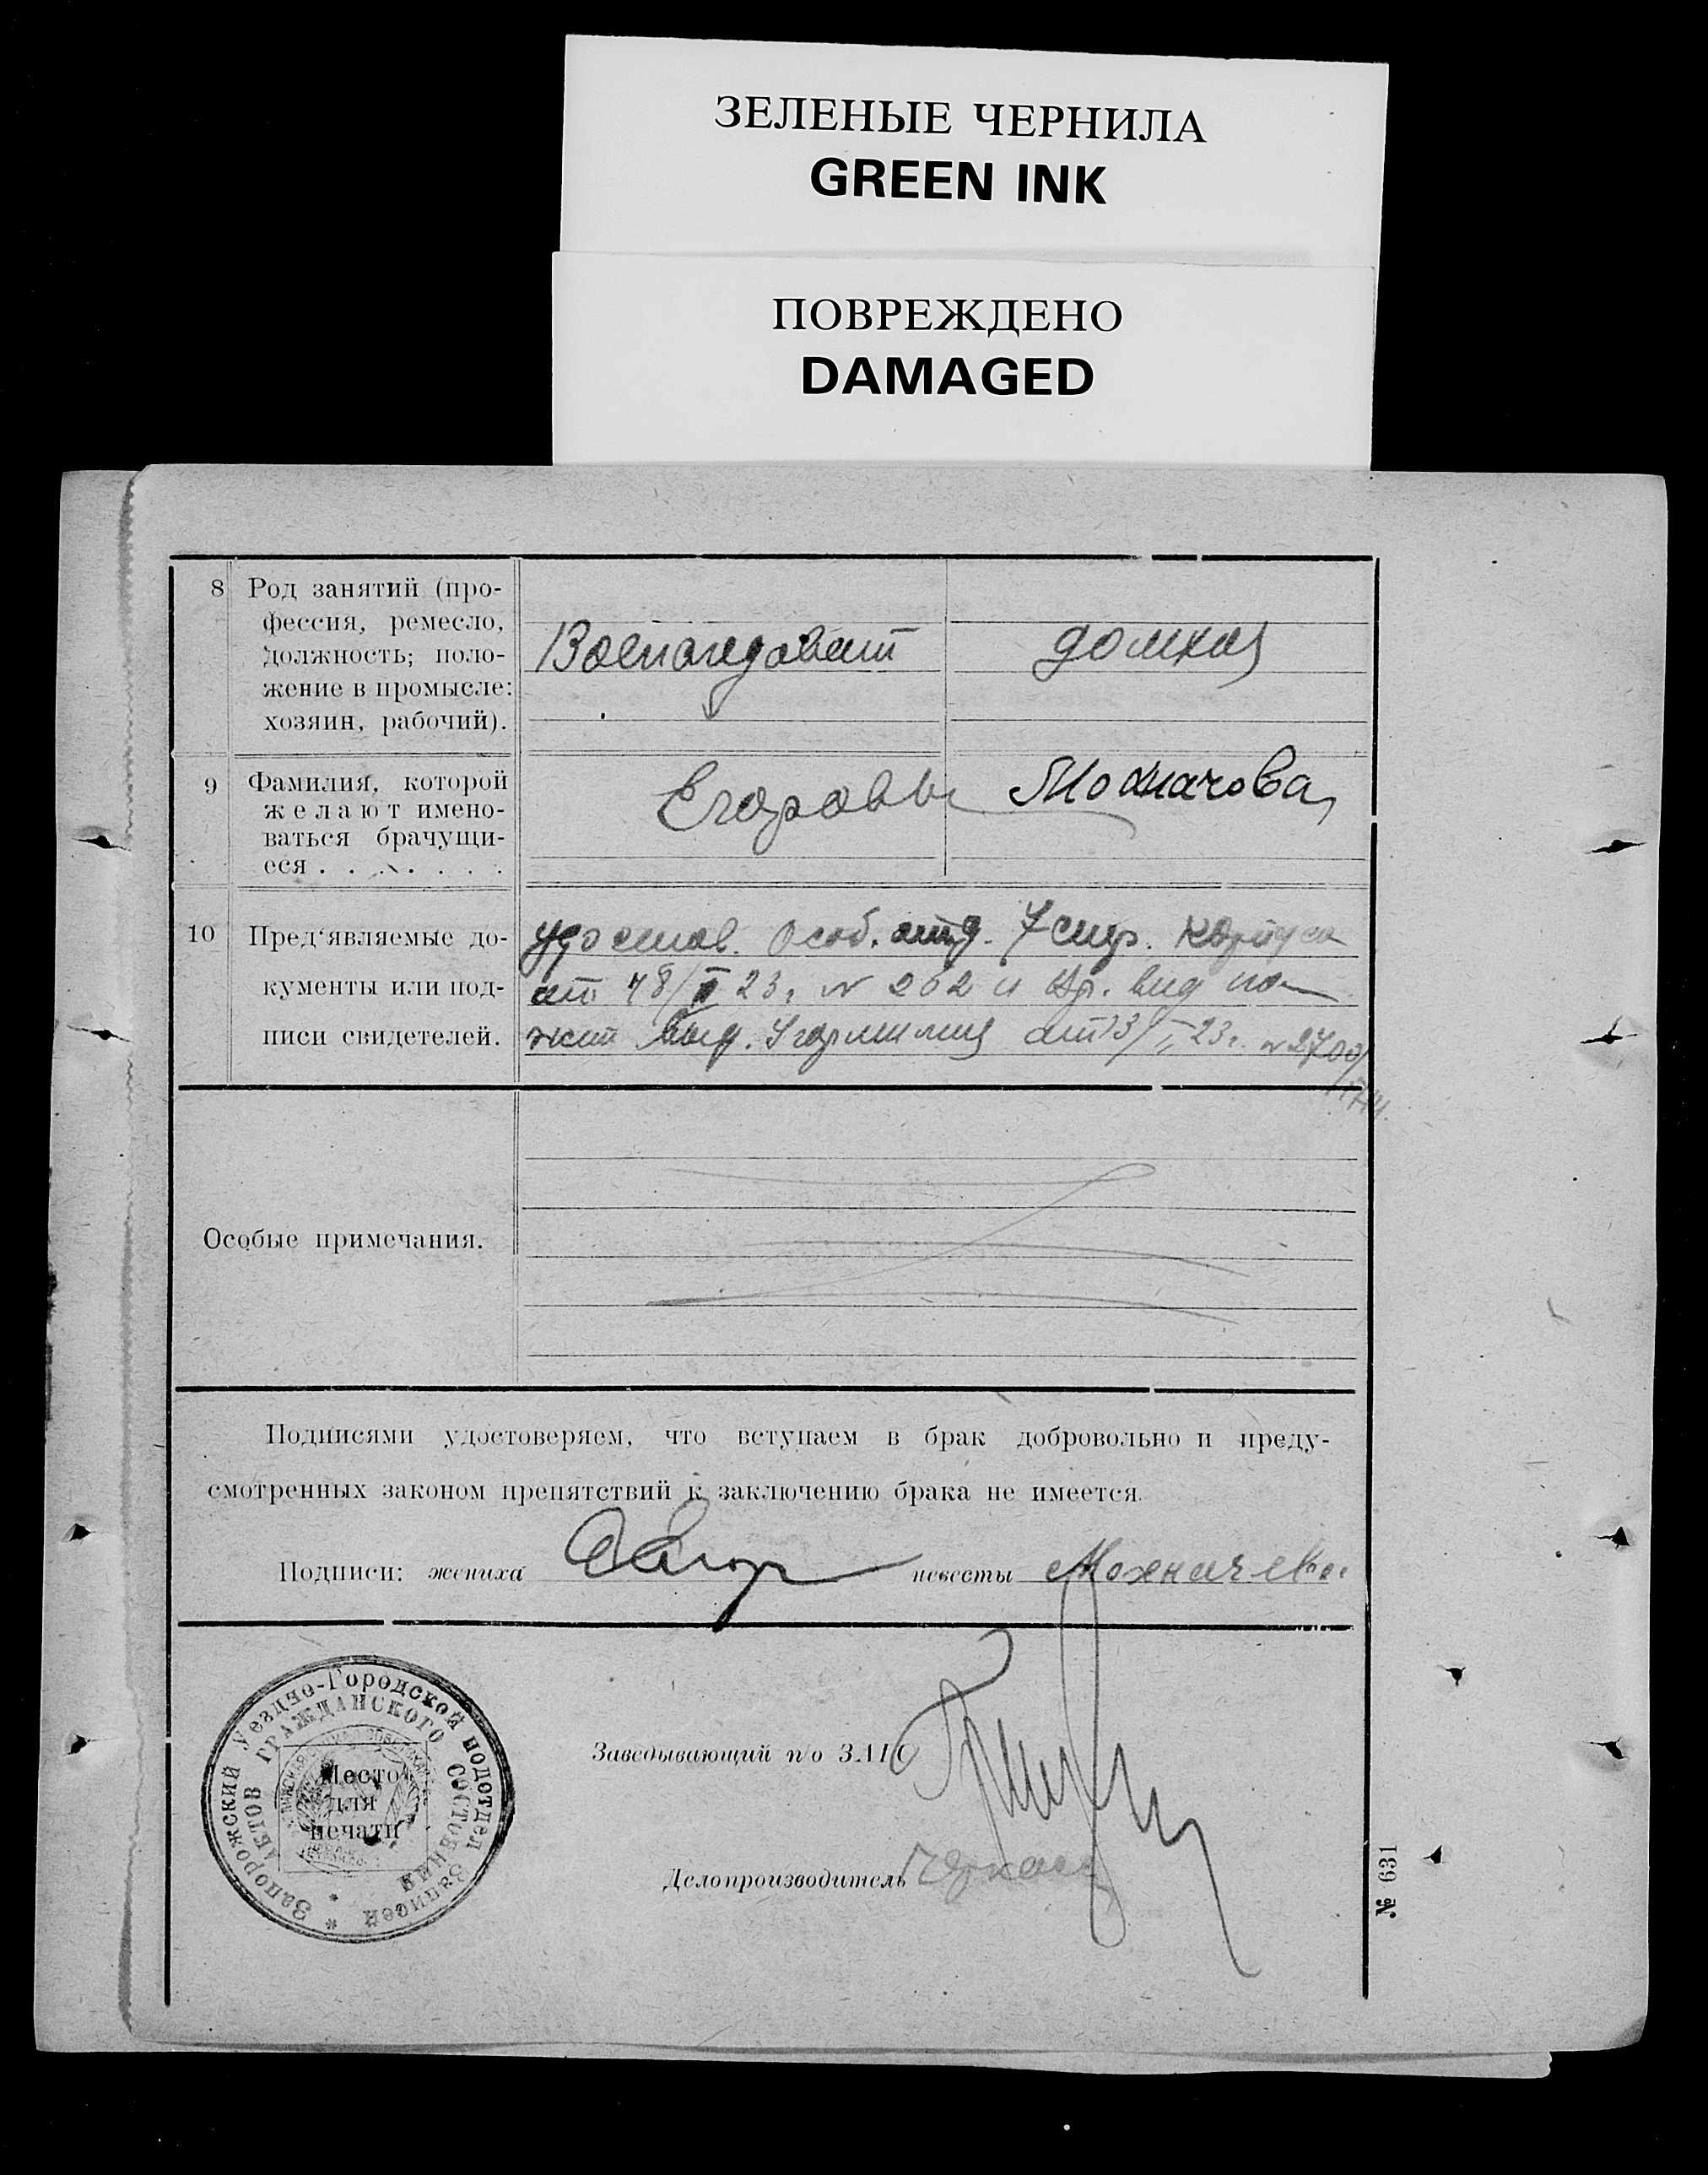 ЗЕЛЕНЫЕ ЧЕРНИЛА
GREEN INK
ПОВРЕЖДЕНО
DAMAGED
8 Род занятий (про-
фессия, ремесло,
должность; поло-
жение в промысле:
хозяин, рабочий).
домхоз
9 Фамилия, которой
желают имено-
ваться брачущи-
еся . . . . . . .
Егоровы Мохначова
10 Пред'являемые до-
кументы или под-
писи свидетелей.
удостов. Особ. отд. 7 стр. Корпуса
от 18/II 23г. № 262 и вр. вид на
жит. выд. Угормилиц от 13/I 23г. № 2700/
Особые примечания.
Подписями удостоверяем, что вступаем в брак добровольно и преду-
смотренных законом препятствий к заключению брака не имеется.
Подписи: жениха невесты Мохначева
Запорожский Уездно-Городской подотдел Записей
АКТОВ ГРАЖДАНСКОГО СОСТОЯНИЯ
Место
для
печати
Заведывающий п/о ЗАГС
Делопроизводитель
№ 631